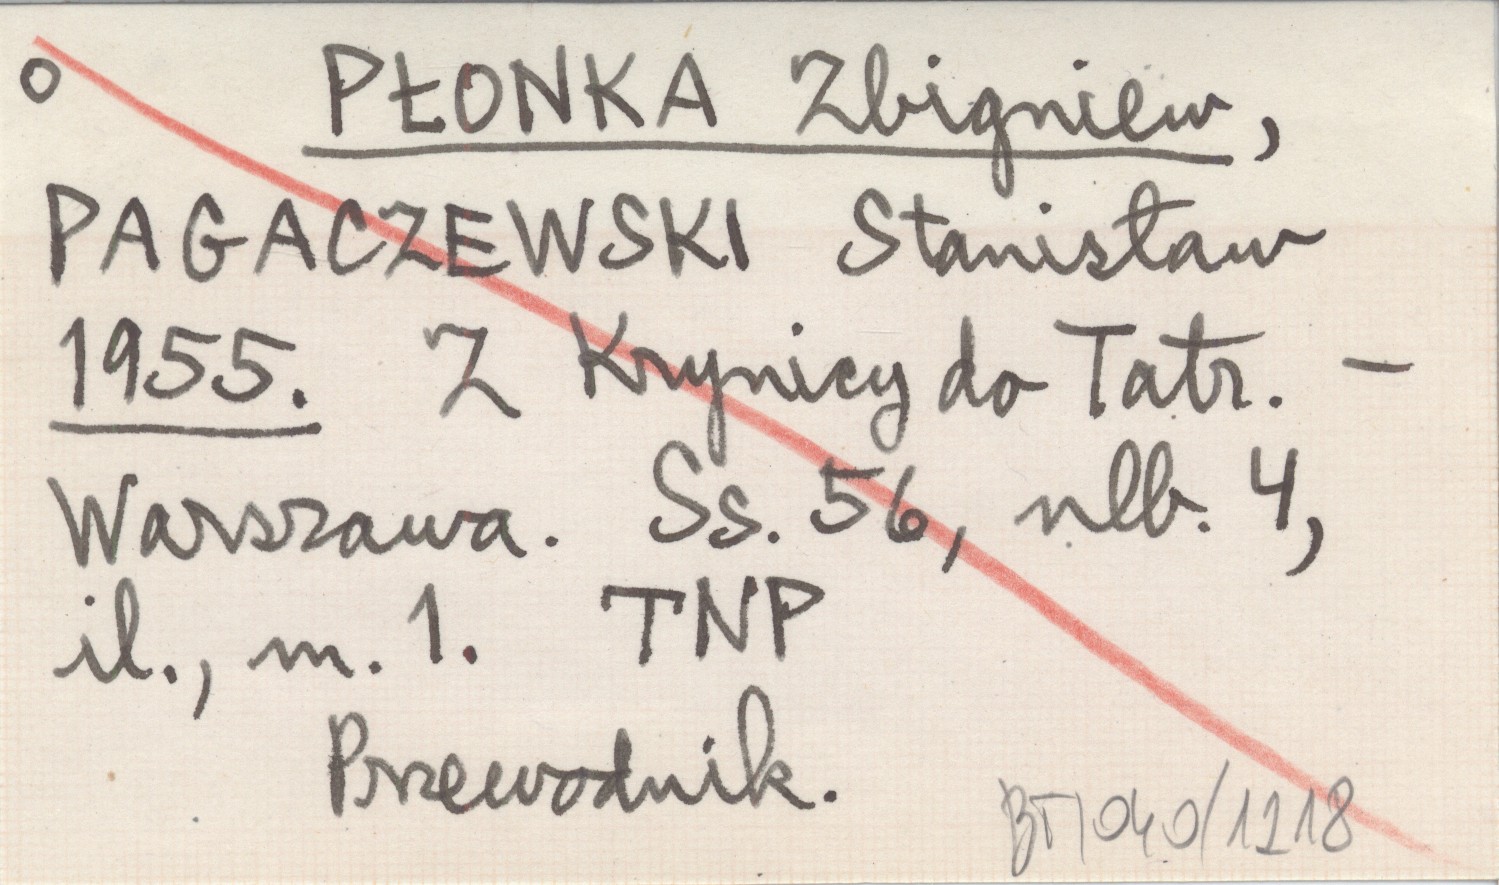 o PŁONKA Zbigniew,
PAGACZEWSKI Stanisław
1955. Z Krynicy do Tatr. –
Warszawa. Ss. 56, nlb. 4,
il., m. 1. TNP
Przewodnik.
BT/040/1218